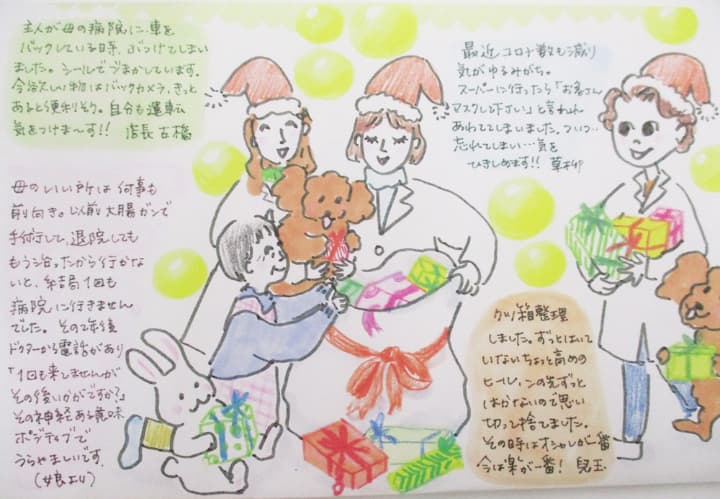 主人が母の病院に、車を
バックしている時、ぶつけてしまい
ました。シールでごまかしています。
今欲しい物はバックカメラ。きっと
あると便利そう。自分も運転
気をつけま〜す!! 店長 古橋
母のいい所は何事も
前向き。以前大腸ガンで
手術して、退院しても
もう治ったから行かな
いと、結局1回も
病院に行きません
でした。その2年後
ドクターから電話があり
「1回も来しませんが
その後いかがですか?」
その神経ある意味
ポジティブで
うらやましいです。
(娘より)
最近コロナ数も減り
気がゆるみがち。
スーパーに行ったら「お客さん
マスクして下さい」と言われ
あわててしまいました。ついつい…
忘れてしまい…気を
ひきしめます!! 草柳
クツ箱整理
しました。ずっとはいて
いないちょっと高めの
ヒール。この先ずっと
はかないので思い
切って捨てました。
その時はオシャレが一番
今は楽が一番! 児玉